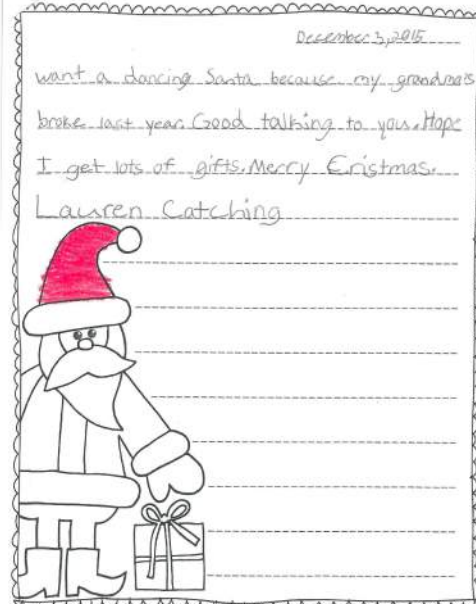 December 3, 2015
want a dancing Santa because my grandma's
broke last year. Good talking to you. Hope
I get lots of gifts. Merry Cristmas.
Lauren Catching